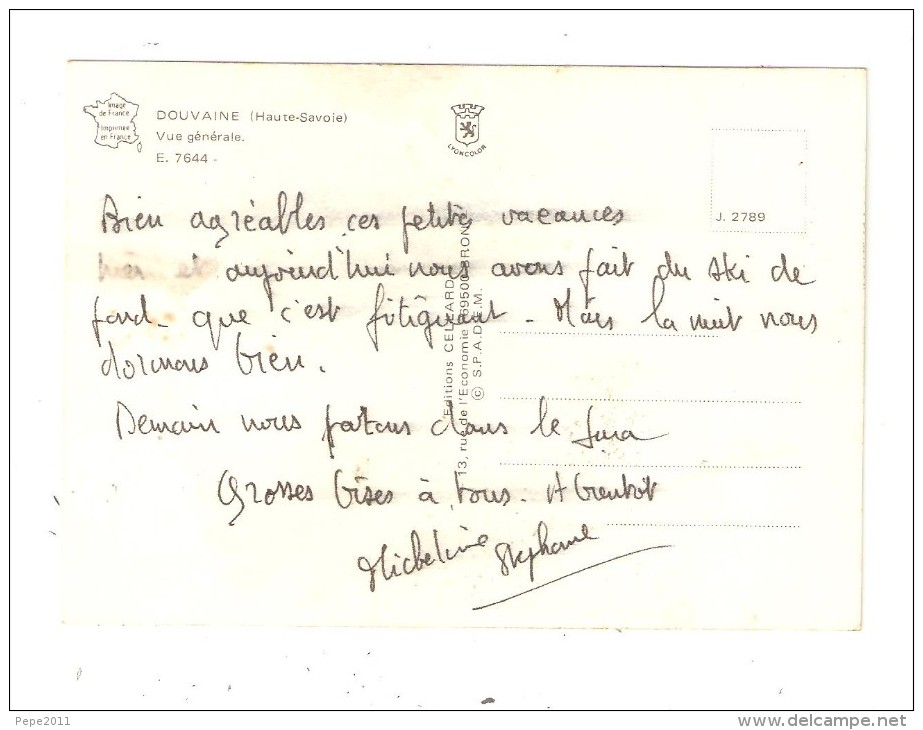 Image
de France
Imprimée
en France
DOUVAINE (Haute-Savoie)
Vue générale.
E. 7644 -
LYONCOLOR
J. 2789
Bien agréables ces petites vacances
hier et aujourd'hui nous avons fait du ski de
fond - que c'est fitiguant - Mais la nuit nous
dormons bien.
Demain nous partons dans le Jura
Grosses bises à tous. A bientôt
Micheline Stéphane
Editions CELLARD
13, rue de l'Economie 69500 BRON
© S.P.A.D.E.M.
Pepe2011
www.delcampe.net